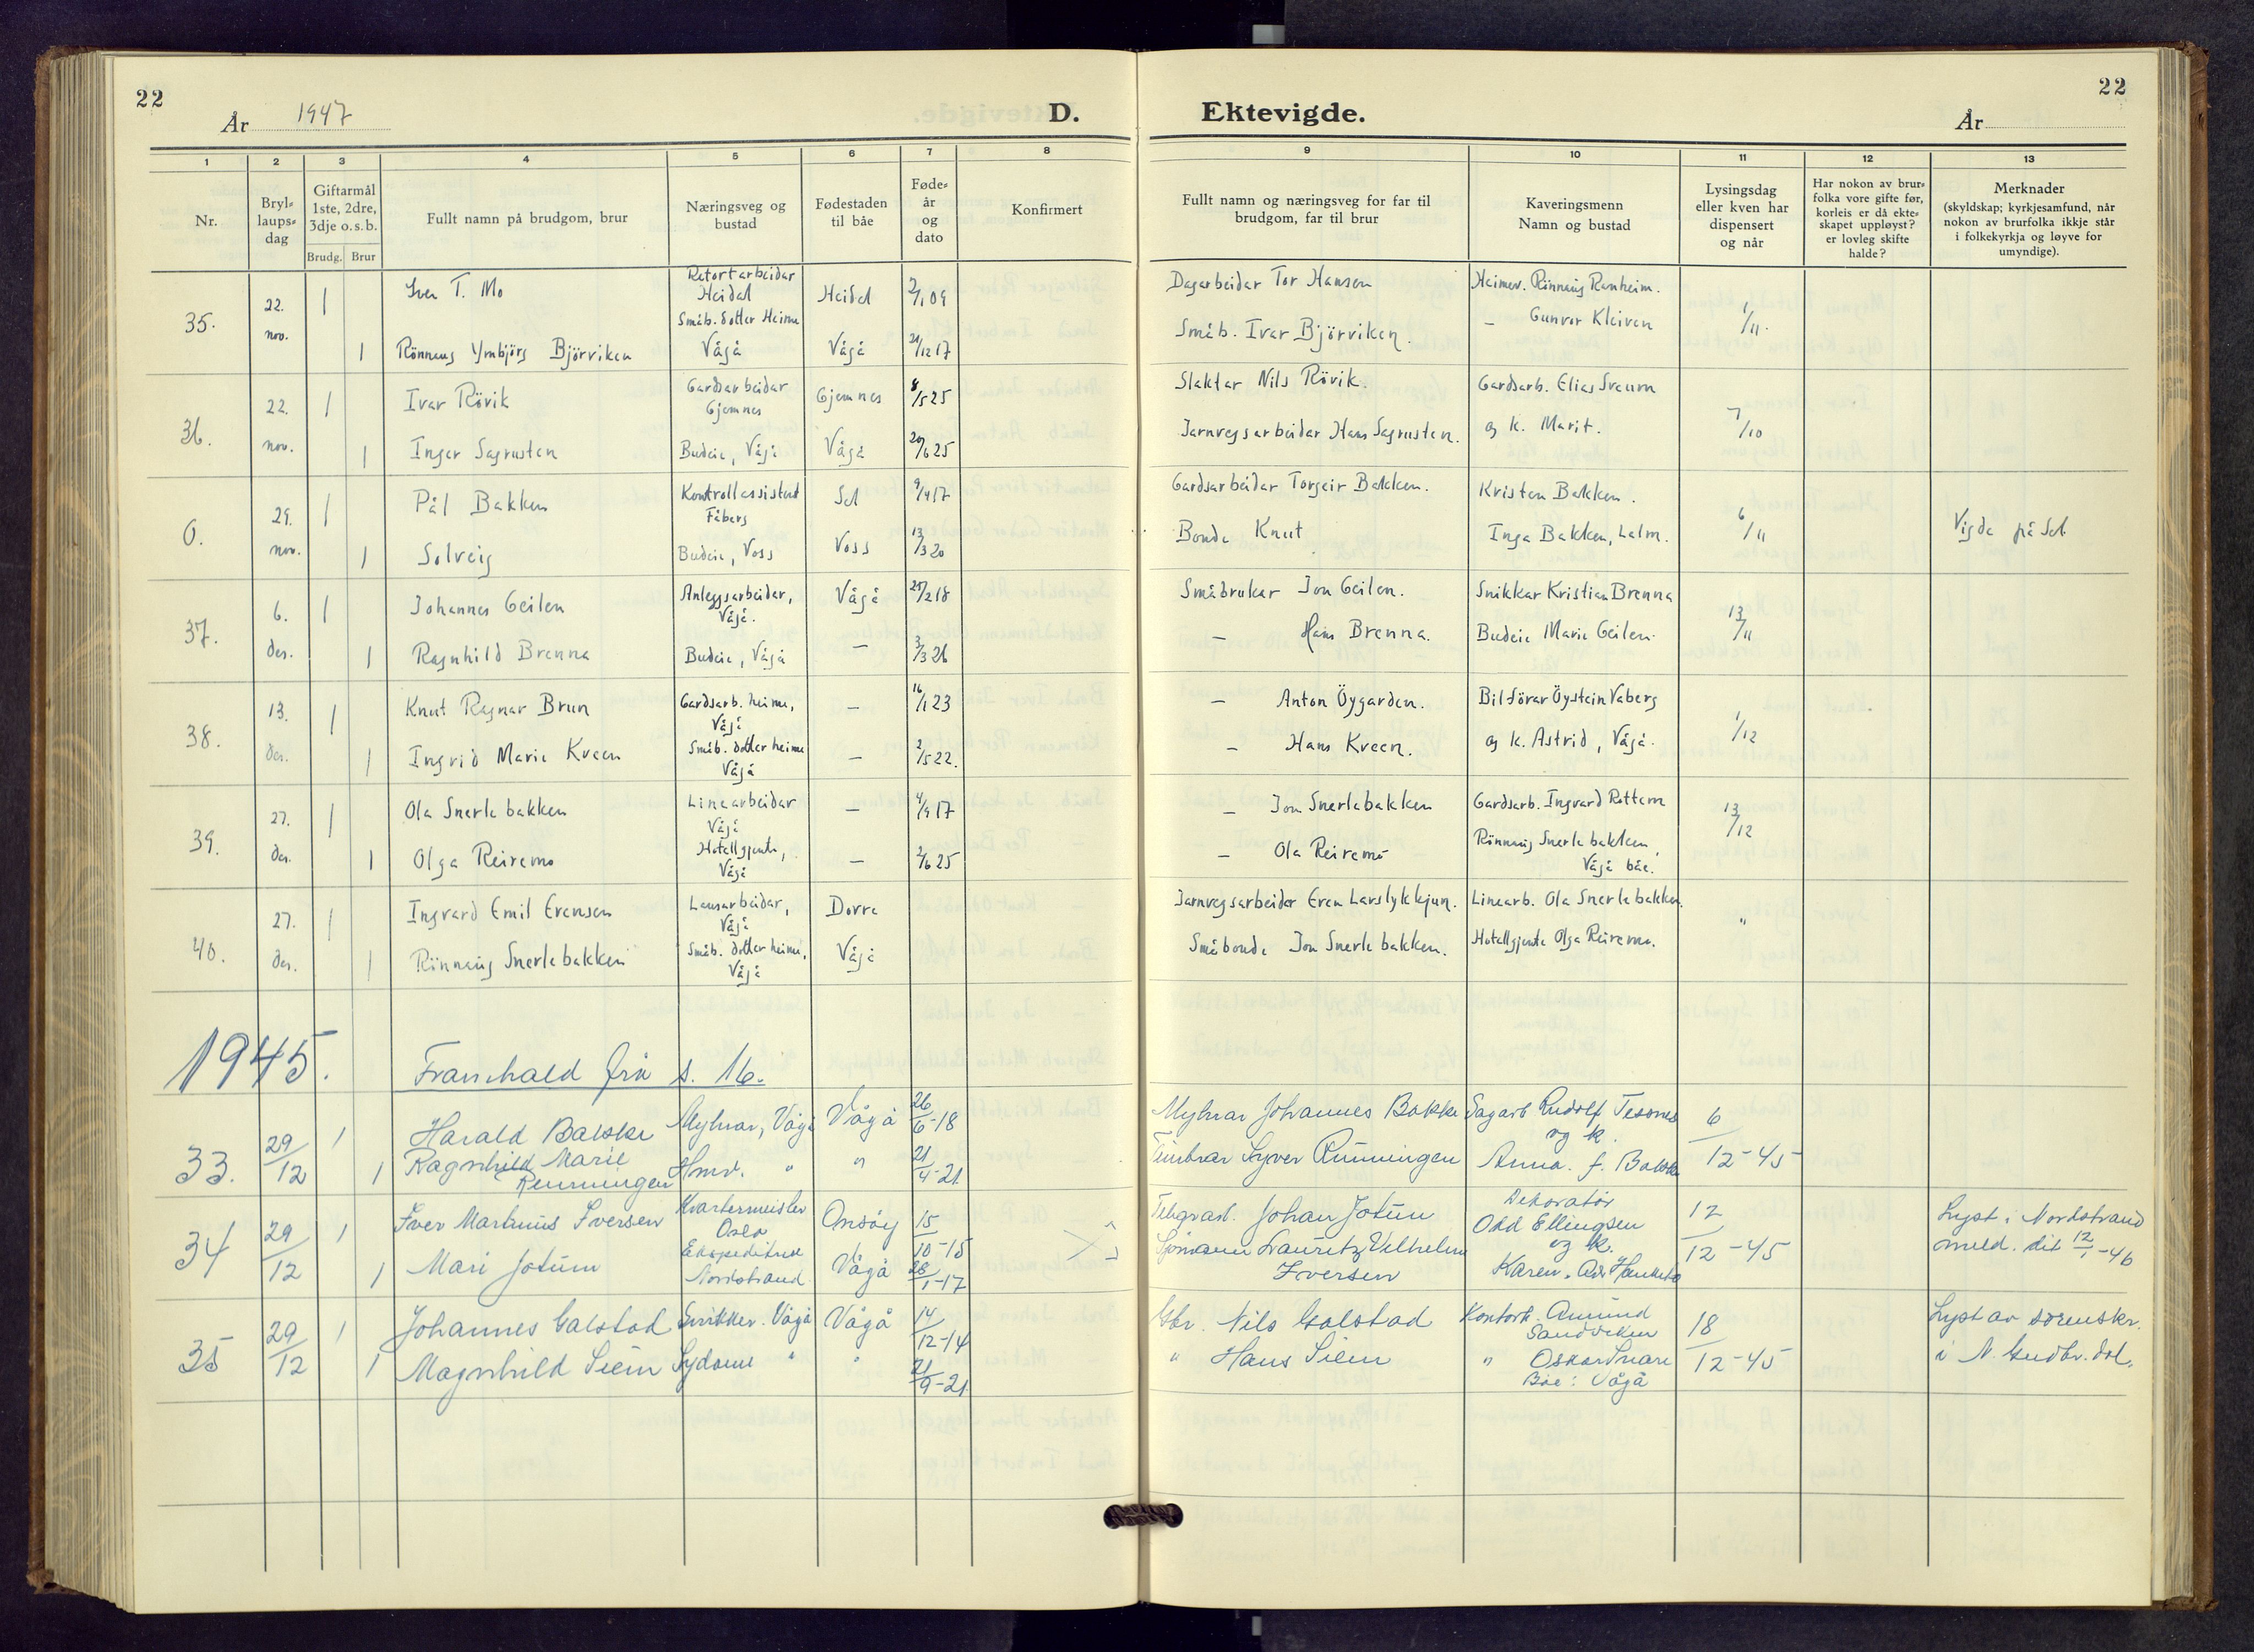 22
År 1947
D.
Ektevigde.
22
År
1 2 3 4 5 6 7 8 9 10 11 12 13
Nr.
Bryl=
laups=
dag
Giftarmål
1ste, 2dre,
3dje o.s.b.
Brudg. Brur
Fullt namn på brudgom, brur
Næringsveg og
bustad
Fødestaden
til båe
Føde=
år
og
dato
Konfirmert
Fullt namn og næringsveg for far til
brudgom, far til brur
Kaveringsmenn
Namn og bustad
Lysingsdag
eller kven har
dispensert
og når
Har nokon av brur=
folka vore gifte før,
korleis er då ekte=
skapet uppløyst?
er lovleg skifte
halde?
Merknader
(skyldskap; kyrkjesamfund, når
nokon av brurfolka ikkje står
i folkekyrkja og løyve for
umyndige).
35. 22. nov. 1 Iver T. Mo Retortarbeidar Heidal Heidal 2/1 09 Dagarbeidar Tor Hansen Heimev. Rönnaug Ranheim. 1/11.
1 Rönnaug Ymbjörg Björviken Småb. dotter Heime Vågå Vågå 12 17 Småb. Ivar Björviken. – Gunvor Kleiven
36. 22. nov. 1 Ivar Rövik Gardsarbeidar Gjemnes Gjemnes 8/5 25 Slaktar Nils Rövik. Gardsarb. Elias Sveum 7/10
1 Inger Sagrusten Budeie, Vågå Vågå 20/6 25 Jarnvegsarbeidar Hans Sagrusten. og k. Marit.
0. 29. nov. 1 Pål Bakken Kontrollassistent Fåberg Sel 9/4 17 Gardsarbeidar Torgeir Bakken. Kristen Bakken. 6/11 Vigde på Sel
1 Solveig Budeie, Voss Voss 13/3 20 Bonde Knut Inga Bakken, Lalm.
37. 6. des. 1 Johannes Geilen Anleggsarbeidar, Vågå. Vågå 25/2 18 Småbrukar Jon Geilen. Snikkar Kristian Brenna 13/11
1 Ragnhild Brenna Budeie, Vågå – 3/3 26 – Hans Brenna. Budeie Marie Geilen.
38. 13. des. 1 Knut Ragnar Brun Gardsarb. heime, Vågå – 16/1 23 – Anton Öygarden. Bilförar Öystein Vaberg 1/12
1 Ingrid Marie Kveen Småb. dotter heime Vågå – 2/5 22. – Hans Kveen. og k. Astrid, Vågå.
39. 27. des. 1 Ola Snerlebakken Linearbeidar Vågå – 4/9 17 – Jon Snerlebakken Gardsarb. Ingvard Rottem 13/12
1 Olga Reiremo Hotellgjente, Vågå – 2/6 25 – Ola Reiremo Rönnaug Snerlebakken, Vågå båe.
40. 27. des. 1 Ingvard Emil Evensen Lausarbeidar, Vågå Dovre Jarnvegsarbeider Even Larslykkjun. Linearb. Ola Snerlebakken. "
1 Rönnaug Snerlebakken Småb. dotter heime, Vågå Vågå Småbonde Jon Snerlebakken. Hotellgjente Olga Reiremo.
1945. Framhald frå s. 16.
33. 29/12 1 Harald Bakke Mylnar, Vågå Vågå 26/6-18 Mylnar Johannes Bakke Sagarb Rudolf Tessnes og k. 6/12-45
1 Ragnhild Marie Rinningen Hmv. " " 21/4-21 Tømbrar Syver Rinningen Anna. f. Bakke
34 29/12 1 Iver Martinius Iversen Kvartermeister Oslo Onsöy 15/10-15 Telegrafb. Johan Jotun Dekoratör Odd Ellingsen og k. 12/12-45 Lyst i Nordstrand
1 Mari Jotun Ekspeditrise Nordstrand Vågå 28/1-17 Sjömann Lauritz Vilhelm Iversen Karen, meld. dit 12/1-46
35 29/12 1 Johannes Galstad Snikker. Vågå Vågå 14/12-14 Gbr. Nils Galstad Kontorb. Amund Sandviken 18/12-45 Lyst av sorenskr.
1 Magnhild Siem Sydame " " 21/9-21 " Hans Siem " Oskar Snare Båe: Vågå i N. Gudbr. dal.